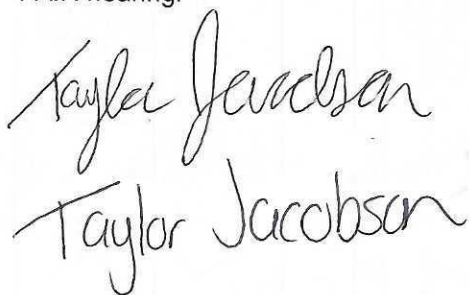 hearing.
Taylor Jacobson
Taylor Jacobson